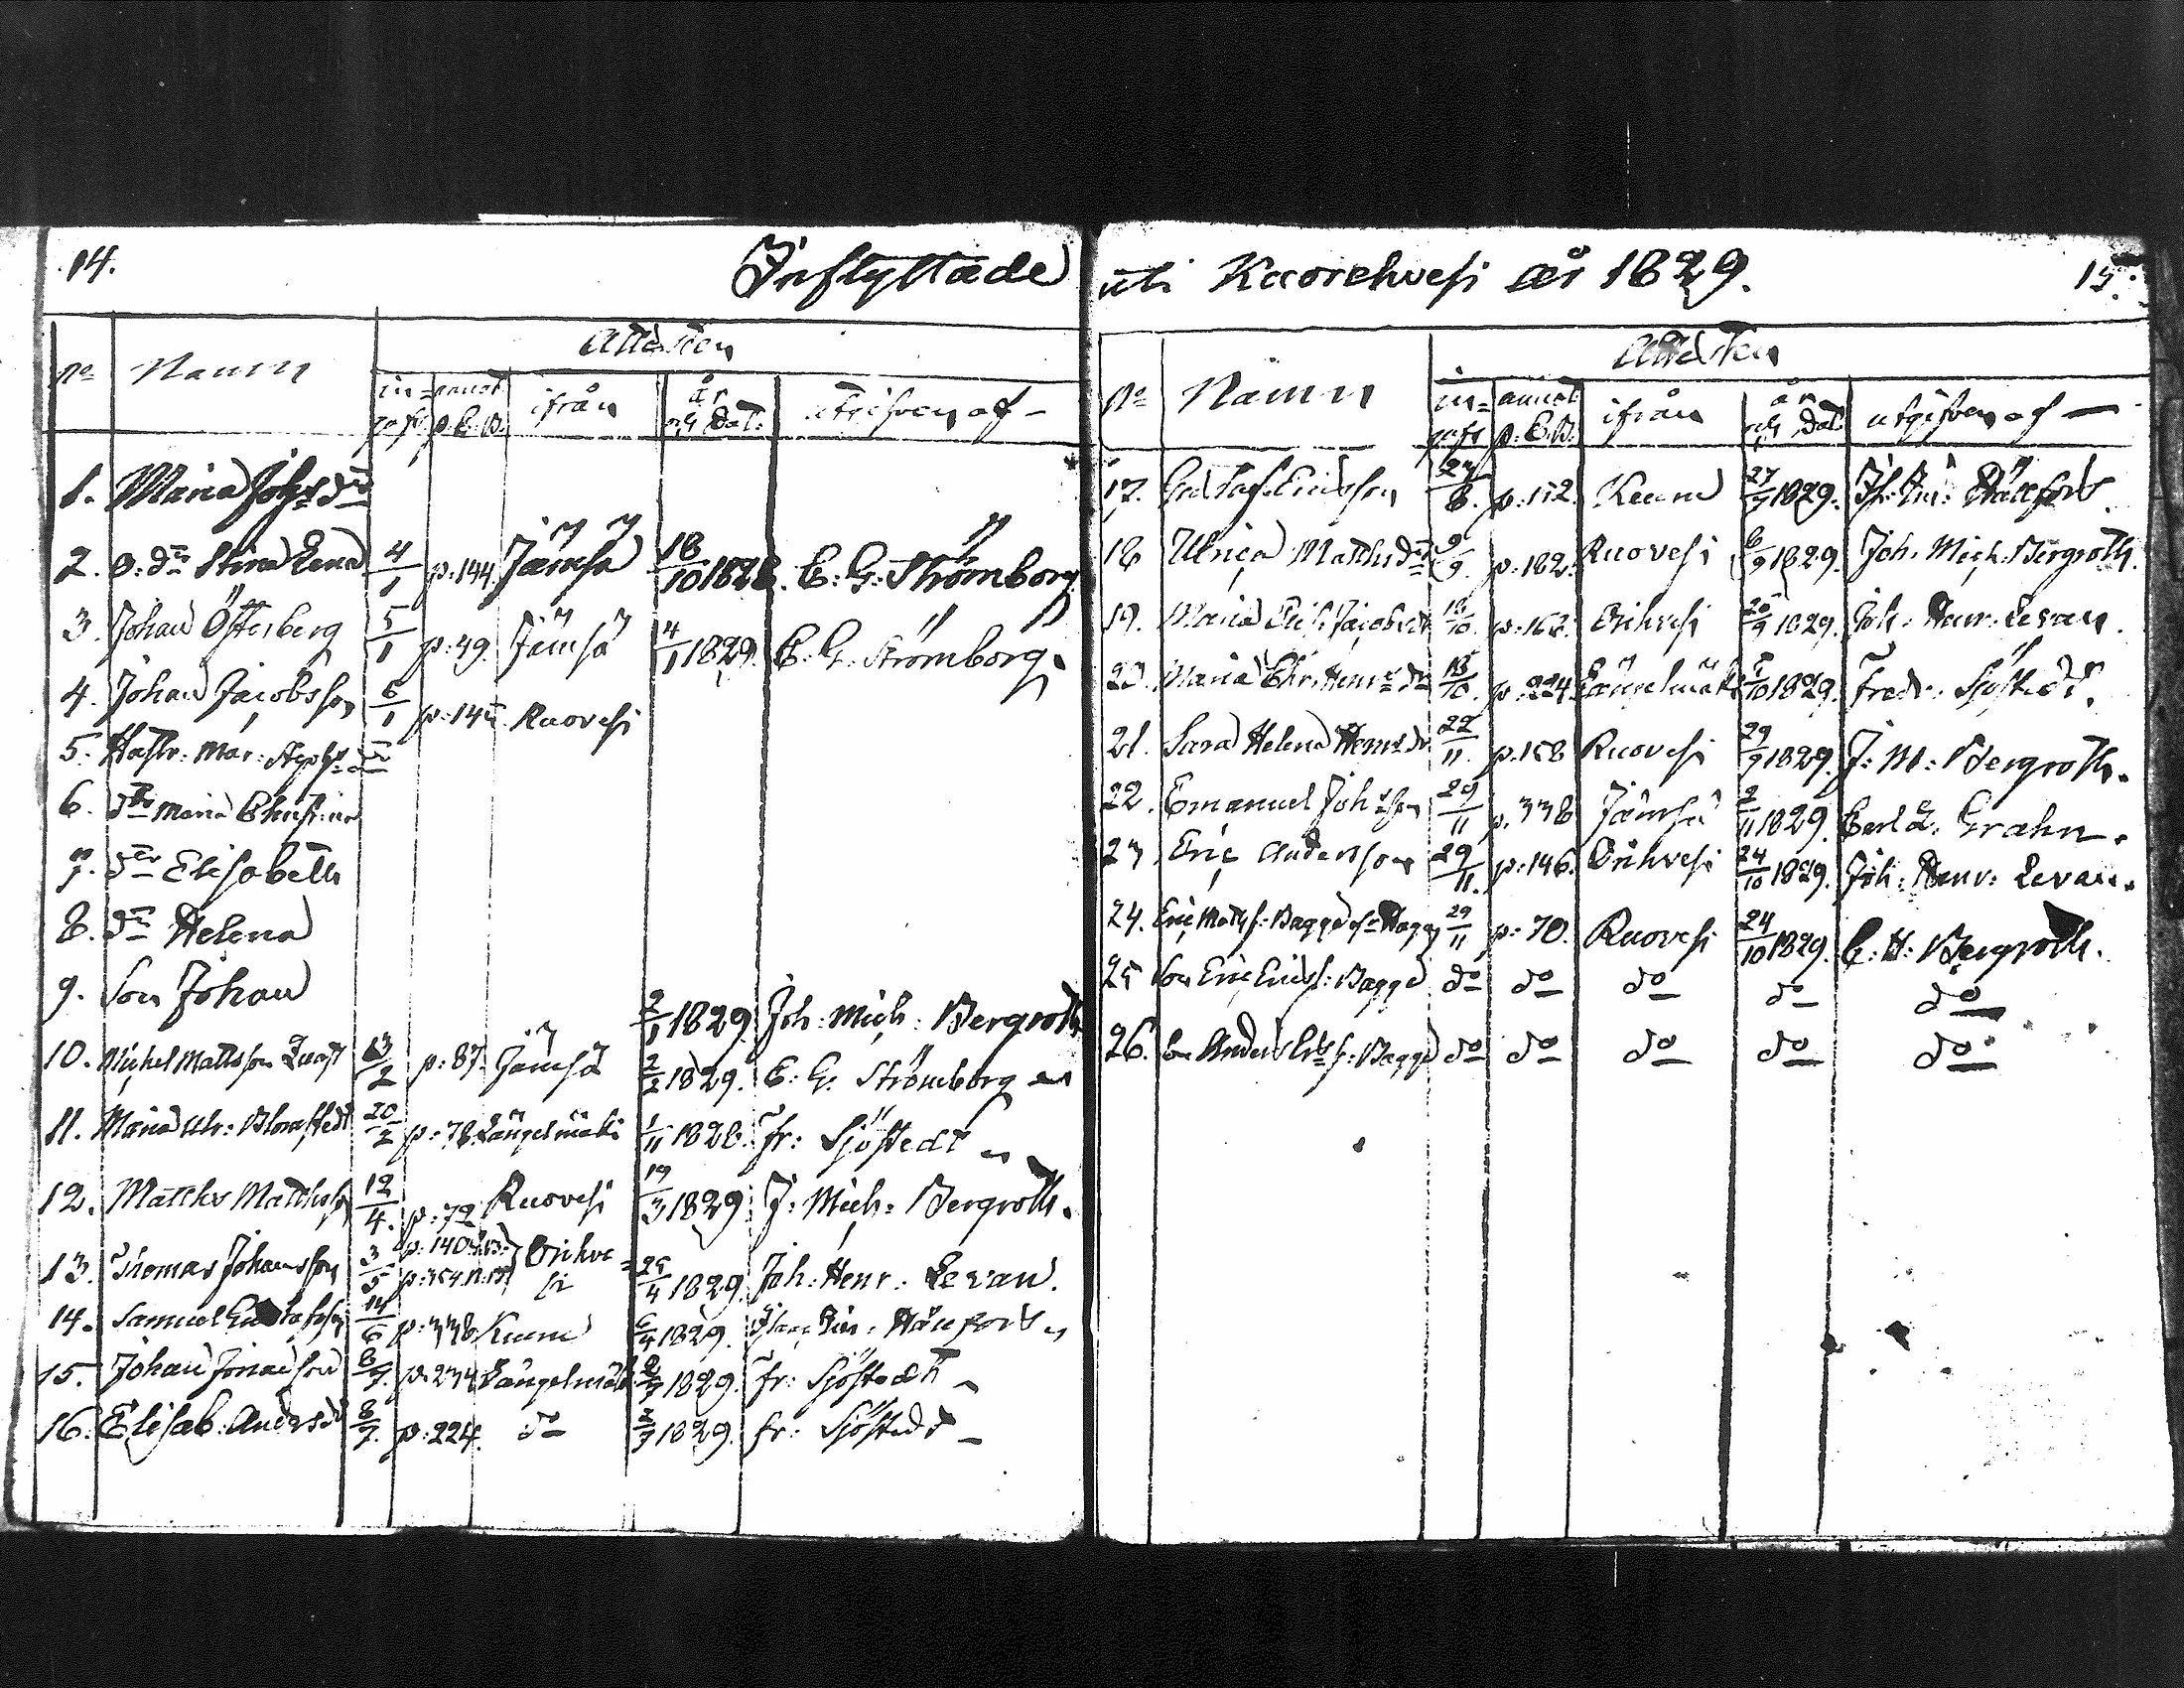 14.
Inflyttade
No Namn
Attesten
in= annot
gafs. p. C. B. ifrån år och Dat: utgifven af —
1. Maria Johsdr
2. D:dr Stina Lena 4/1 p: 144. Jämsä 18/10 1828. C: G: Strömborg
3. Johan Österberg 5/1 p: 49. Jämsä 4/1 1829. C. G: Strömborg.
4. Johan Jacobsson 6/1 Ruovesi
5. Hustr: Mar:
6. dr Maria Christina
7. dr Elisabeth
8. dr Helena
9. Son Johan
2/1 1829. Joh: Mich: Bergroth
10. Michel Mattsson 13/2 p: 87. Jämsä 2/2 1829. C: G: Strömborg
11. Maria Ulr: Blomstedt 20/2 p: 78. Längelmäki 1/11 1828. Fr: Sjöstedt
12. Matths Mattsson 12/4. p: 72 Ruovesi 19/3 1829. J: Mich: Bergroth.
13. Thomas Johansson 3/5 p: 140 Orihve=
si 25/4 1829. Joh: Henr: Levan.
14. Samuel Gustafsson 14/6 p: 338 Kumo 1829.
15. Johan Jonasson 8/7. p. 234 Längelmäki 1829. Fr: Sjöstedt
16. Elisab: Andersdr 8/7. p: 224. do 1829. Fr: Sjöstedt
uti Kuorehvesi år 1829.
15.
No Namn
Attesten
in= annot
gafs p: C. B. ifrån år och Dat utgifven af —
17. Gustaf Ericsson 27/8. p: 152. Kumo 27/7 1829.
18 Ulrica Mattsdr 9/9. p: 182. Ruovesi 6/9 1829. Joh. Mich. Bergroth.
19. Maria 18/10. p: 162. Orihvesi 20/9 1829. Joh: Henr: Levan.
20. Maria Chr. Henrsdr 18/10. p: 224. Längelmäki 1829. Fredr: Sjöstedt.
21. Sara Helena Henrsdr 22/11. p: 158 Ruovesi 29/9 1829. J: M: Bergroth.
22. Emanuel Johsson 29/11 p. 338 Jämsä 2/11 1829. Carl G. Grahn.
23. Eric Andersson 29/11. p: 146. Orihvesi 24/10 1829. Joh: Henr: Levan.
24. Eric Mattss: Bagge 29/11 p: 70. Ruovesi 24/10 1829. C: H: Bergroth.
25 Son Eric Ericss: Bagge do do do do do
26. Son Anders Ericss: Bagge do do do do do